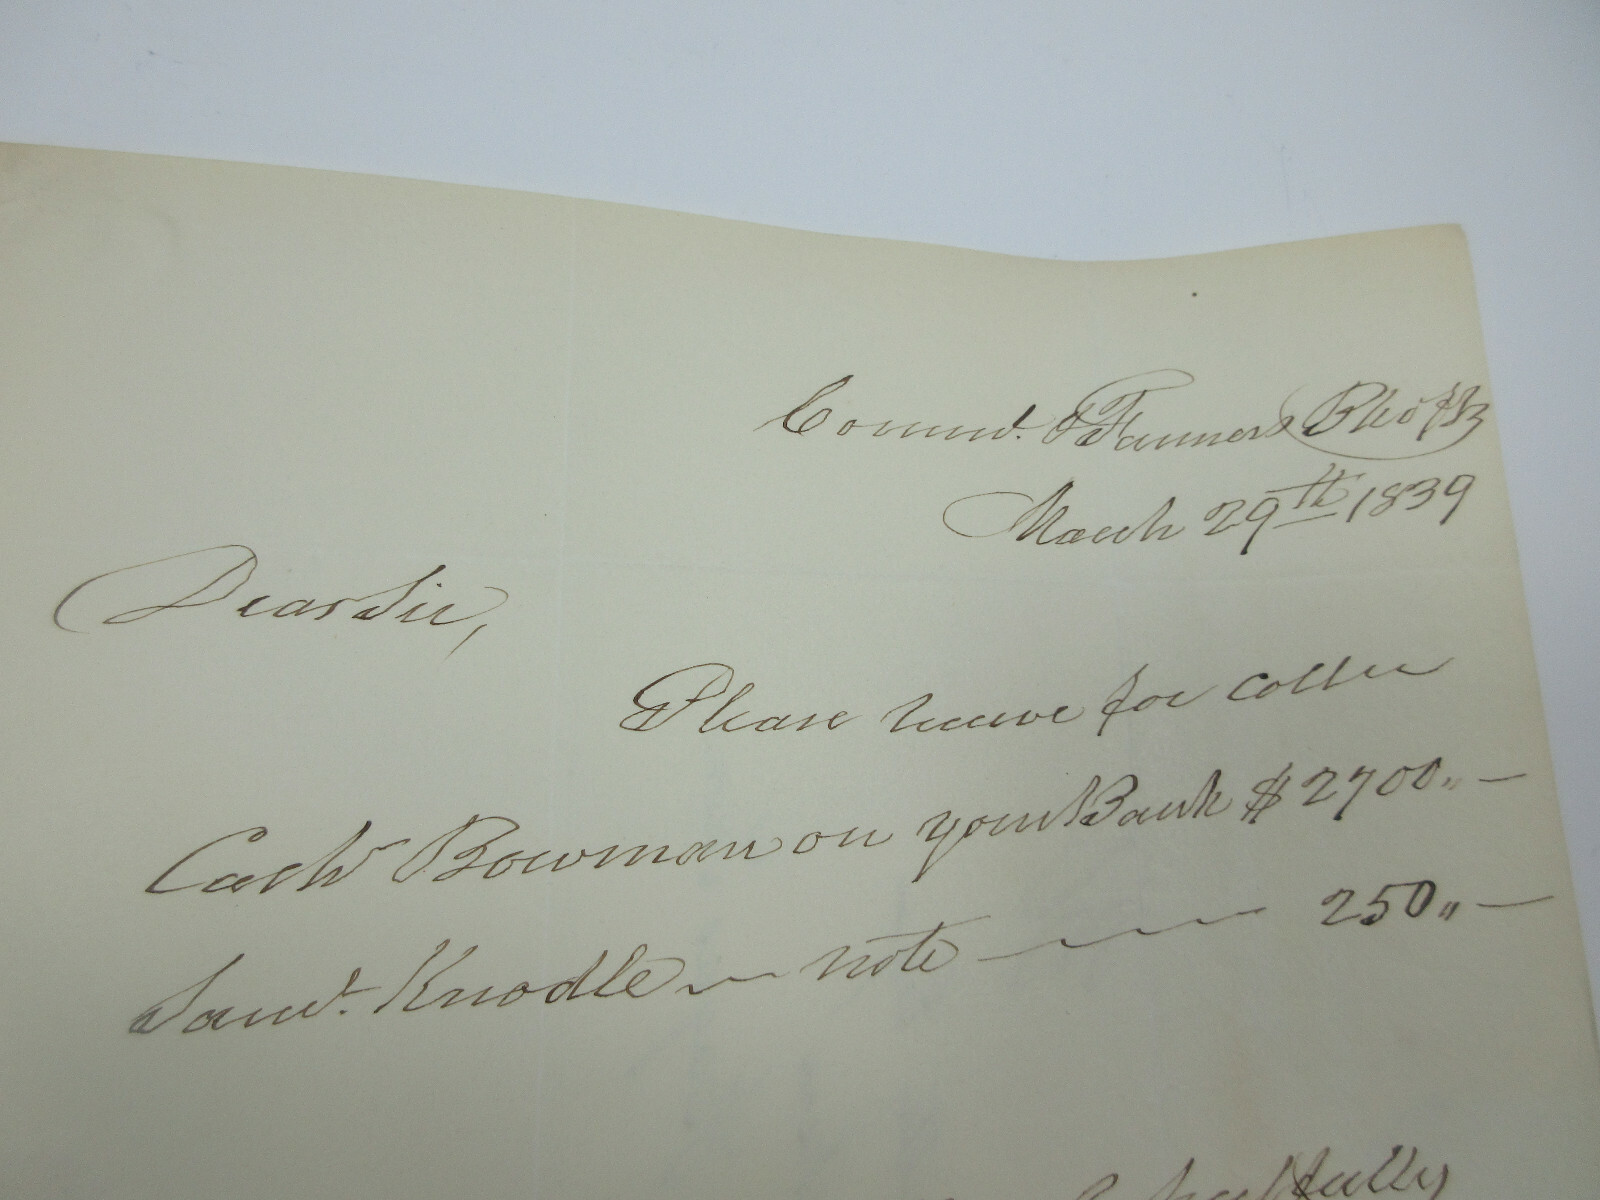 Comml. & Farmers Bk of B
March 29th 1839
Dear Sir,
Please receive for collec
Cash Bowman on your Bank $ 2700,, —
Saml. Knodle note 250,, —